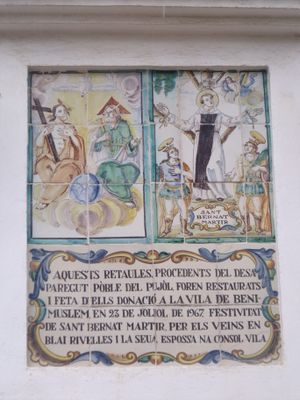 SANT
BERNAT
MARTIR
AQUESTS RETAULES, PROCEDENTS DEL DESA
PAREGUT PÒBLE DEL PUJÒL FOREN RESTAURATS
I FETA D'ELLS DONACIÓ A LA VILA DE BENI
MUSLEM, EN 23 DE JÓLIOL DE 1967, FESTIVITAT
DE SANT BERNAT MARTIR, PER ELS VEINS EN
BLAI RIVELLES I LA SEUA ESPOSSA NA CONSOL VILA